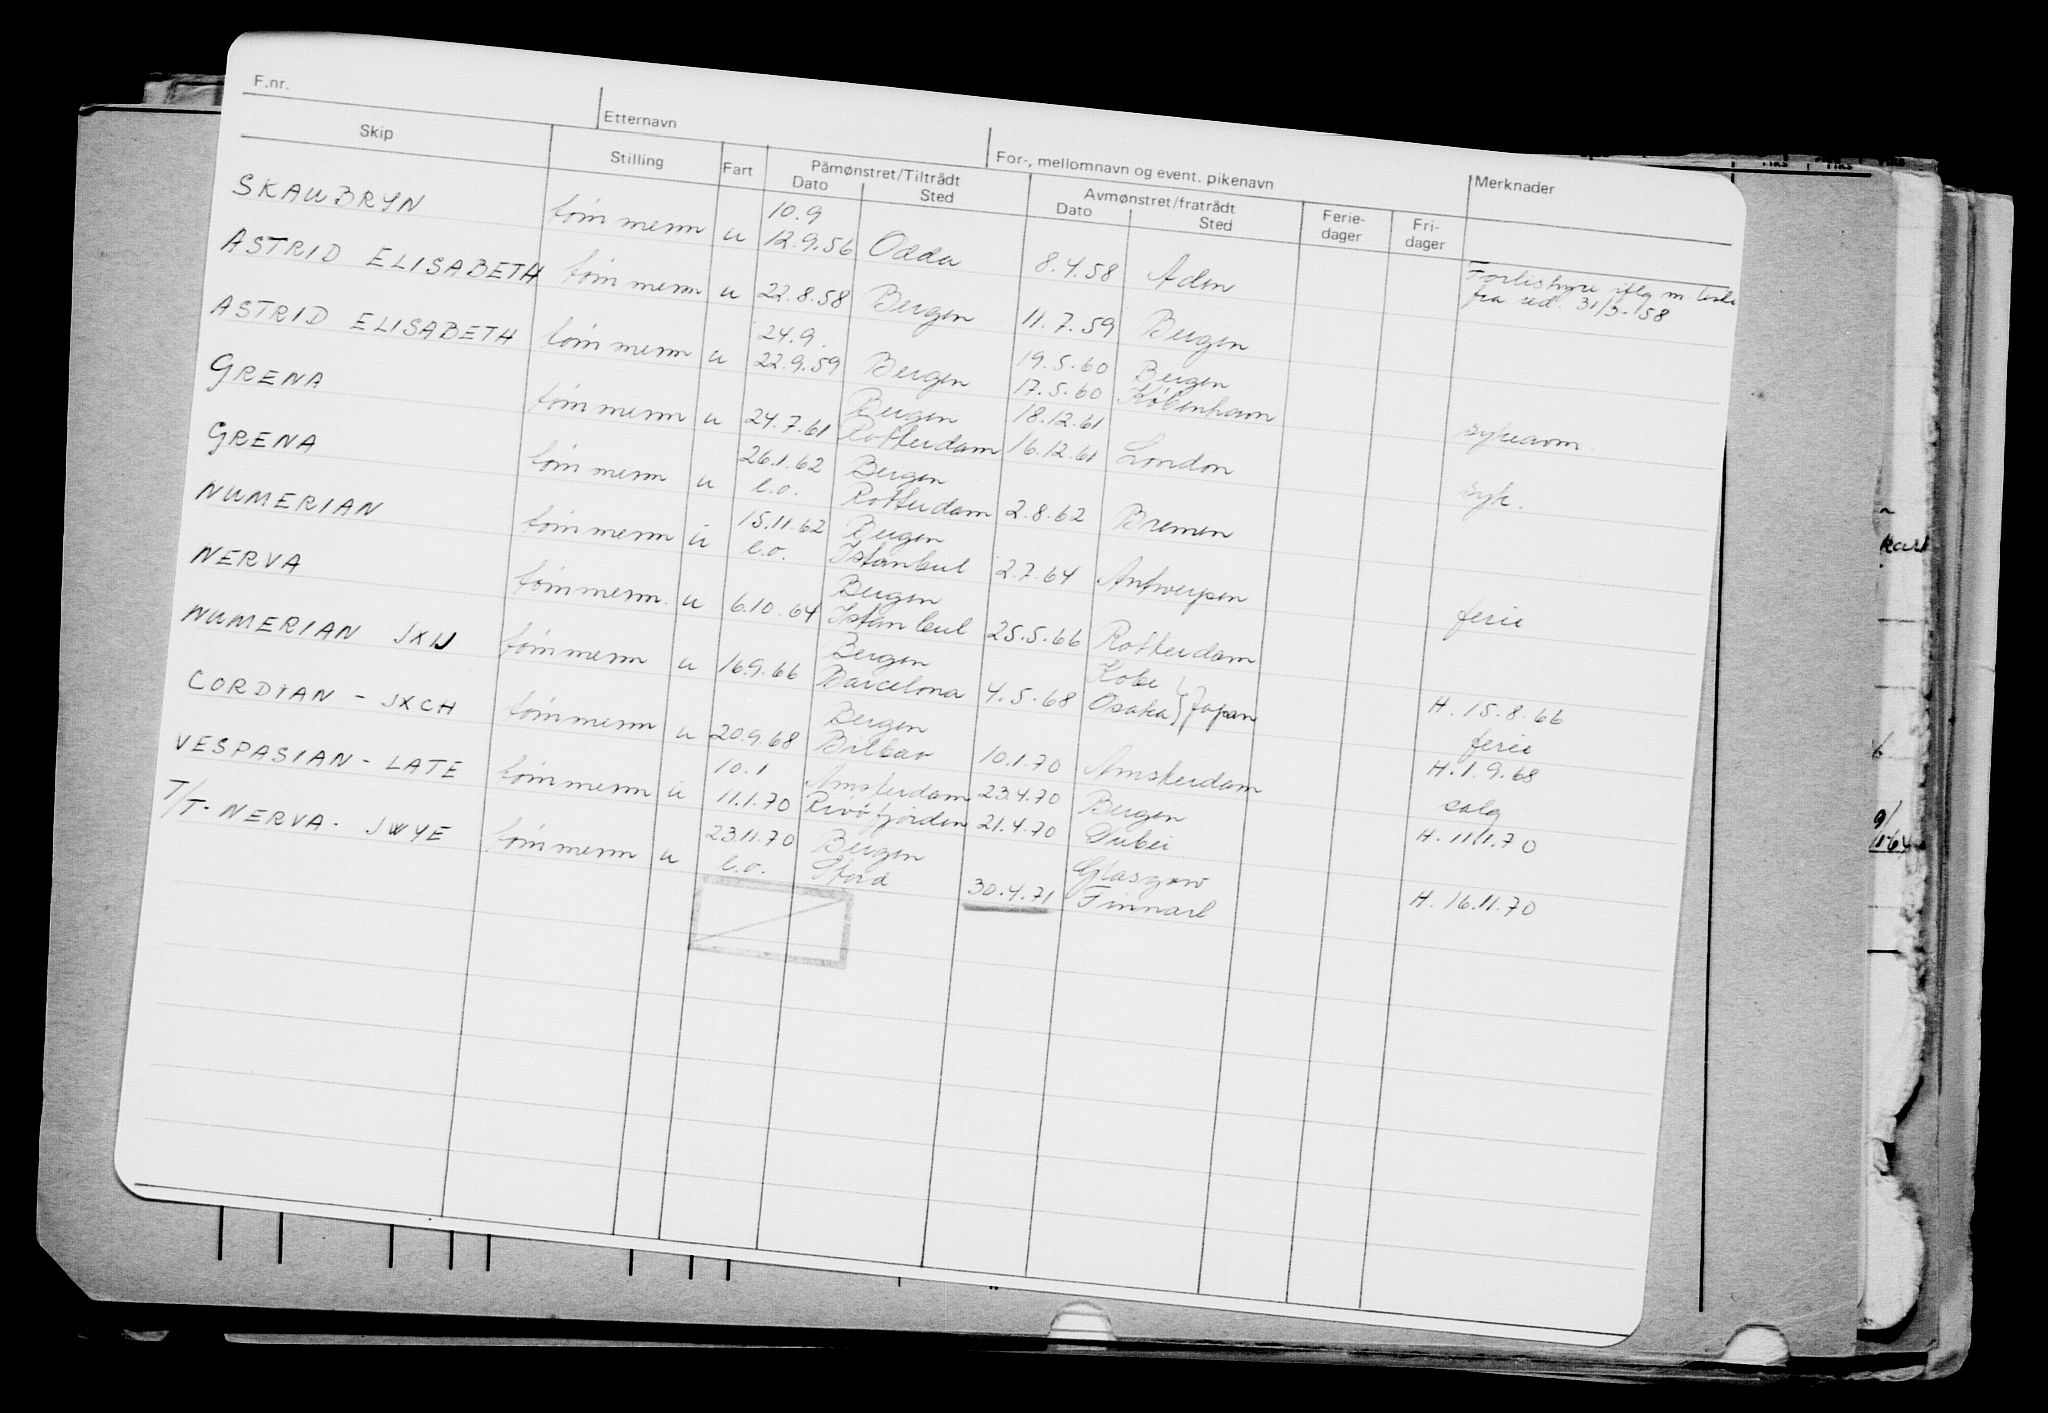 F.nr.
Etternavn
For-, mellomnavn og event. pikenavn
Skip
Stilling
Fart
Påmønstret/Tiltrådt
Dato
Sted
Avmønstret/fratrådt
Dato
Sted
Ferie-
dager
Fri-
dager
Merknader
SKAUBRYN tømmerm u 10.9
12.9.56 Odda 8.4.58 Aden Forlishyre iflg m
fra red. 31/3-58
ASTRID ELISABETH tømmerm u 22.8.58 Bergen 11.7.59 Bergen
ASTRID ELISABETH tømmerm u 24.9.
22.9.59 Bergen 19.5.60 Bergen
17.5.60 København sykeavm.
GRENA tømmerm u 24.7.61 Bergen
Rotterdam 18.12.61
16.12.61 London syk.
GRENA tømmerm u 26.1.62 Bergen
l.o. Rotterdam 2.8.62 Bremen
NUMERIAN tømmerm u 15.11.62 Bergen
l.o. Istanbul 2.7.64 Antwerpen ferie
NERVA tømmerm. u 6.10.64 Bergen
Istanbul 25.5.66 Rotterdam
NUMERIAN JXIJ tømmerm u 16.9.66 Bergen
Barcelona 4.5.68 Kobe
Osaka } Japan H. 15.8.66
ferie
CORDIAN - JXCH tømmerm u 20.9.68 Bergen
Bilbao 10.1.70 Amsterdam H. 1.9.68
salg
VESPASIAN - LATE tømmerm u 10.1 Amsterdam 23.4.70 Bergen
11.1.70 Rivøfjorden 21.4.70 Dubei H. 11.1.70
T/T- NERVA - JWYE tømmerm u 23.11.70 Bergen
l.o. Stord 30.4.71 Glasgow
Finnart H. 16.11.70